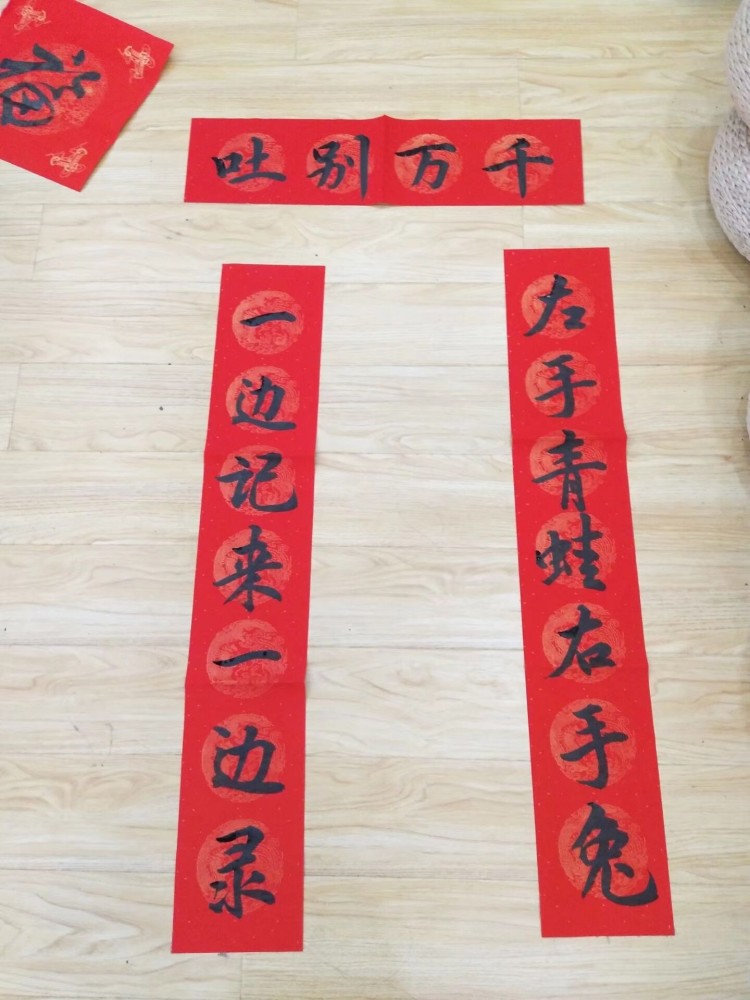 福
千万别吐
左手青蛙右手兔
一边记来一边录